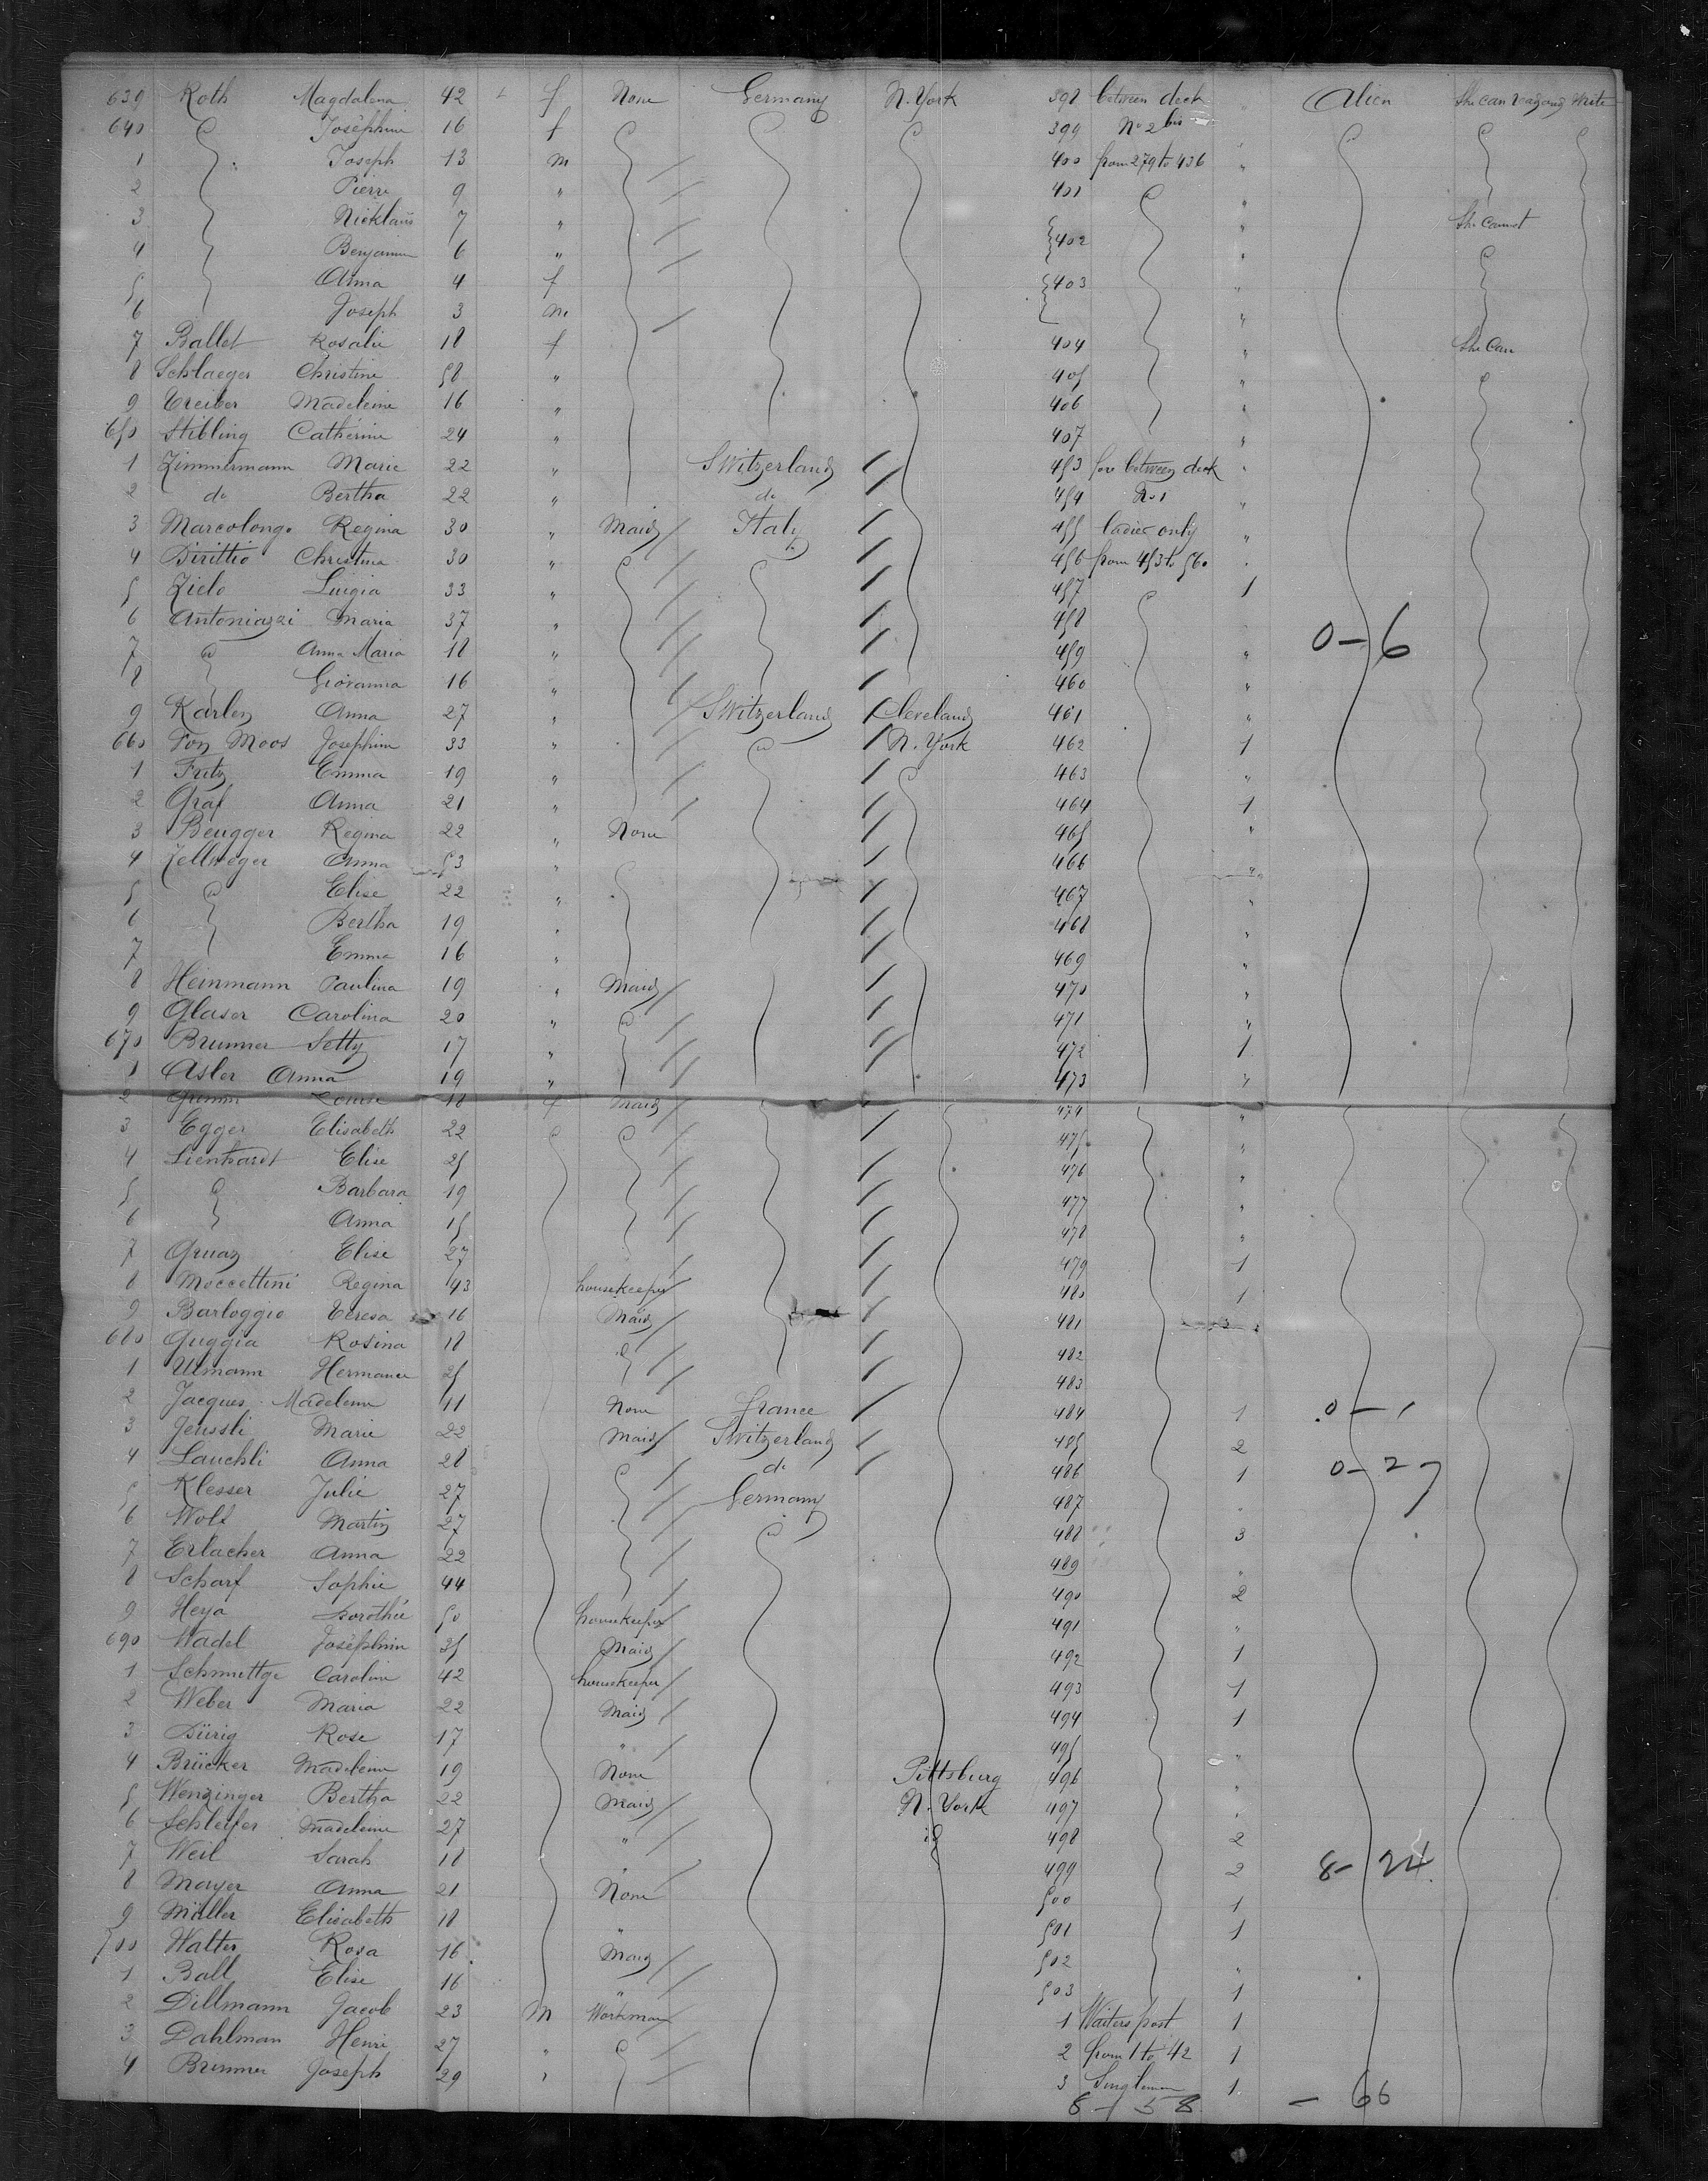 639 Roth Magdalena 42 f None Germany N. York 398 between deck " Alien She can read and write
640 Joséphine 16 f 399 No 2 bis
1 Joseph 13 m 400 from 279 to 436 "
2 Pierre 9 " 401 "
3 Nicklaus 7 " 402 " She cannot
4 Benjamin 6 "
5 Anna 4 f 403 "
6 Joseph 3 m "
7 Ballet Rosalie 18 f 404 " She Can
8 Schlaeger Christine 58 " 405 "
9 Treiber Madeleine 16 " 406 "
650 Stibling Catherine 24 " 407 "
1 Zimmermann Marie 22 " Switzerland 453 fore between deck "
2 do Bertha 22 " do 454 No 1 "
3 Marcolongo Regina 30 " Maid Italy 455 ladies only "
4 Birittio Christina 30 " 456 from 453 to 560
5 Zielo Luigia 33 " 457 1
6 Antoniazzi Maria 37 " 458 0-6
7 Anna Maria 18 " 459 "
8 Giovanna 16 " 460 "
9 Karlen Anna 27 " Switzerland Cleveland 461 "
660 Von Moos Josephine 33 " N. York 462 1
1 Fritz Emma 19 " 463 "
2 Graf Anna 21 " 464 1
3 Beugger Regina 22 " None 465 "
4 Zellweger Anna 53 " 466 "
5 Elise 22 " 467 "
6 Bertha 19 " 468 "
7 Emma 16 " 469 "
8 Heinmann Paulina 19 " Maid 470 "
9 Glaser Carolina 20 " 471 "
670 Brunner Setty 17 " 472 1
1 Asler Anna 19 " 473 "
2 Grimm Louise 18 f Maid 474 "
3 Egger Elisabeth 22 475 "
4 Lienhardt Elise 25 476 "
5 Barbara 19 477 "
6 Anna 15 478 "
7 Gruaz Elise 27 479 1
8 Moccettini Regina 43 housekeeper 480 1
9 Barloggio Teresa 16 Maid 481
680 Guggia Rosina 18 id 482
1 Ulmann Hermance 25 483
2 Jacques Madeleine 11 None france 484 1 0-1
3 Jeussli Marie 22 Maid Switzerland 485 2
4 Lauchli Anna 28 do 486 1 0-27
5 Klesser Julie 27 Germany 487
6 Wolf Martin 27 488 3
7 Erlacher Anna 22 489 "
8 Scharf Sophie 44 490 2
9 Heya Dorothée 50 housekeeper 491 "
690 Wadel Joséphine 25 Maid 492 1
1 Schmettge Caroline 42 housekeeper 493 1
2 Weber Maria 22 Maid 494 1
3 Dürig Rose 17 " 495 "
4 Brücker Madeleine 19 None Pittsburg 496 "
5 Wenzinger Bertha 22 Maid N. York 497 "
6 Schleifer Madeleine 27 " id 498 2
7 Weil Sarah 18 " 499 2 8-24
8 Mayer Anna 21 None 500 1
9 Müller Elisabeth 18 " 501 1
700 Walter Rosa 16 Maid 502 "
1 Ball Elise 16 " 503 1
2 Dillmann Jacob 23 M Workman 1 Waiters post 1
3 Dahlman Henri 27 " 2 from 1 to 42 1
4 Brunner Joseph 29 " 3 Singlemen 1
8-58 - 66